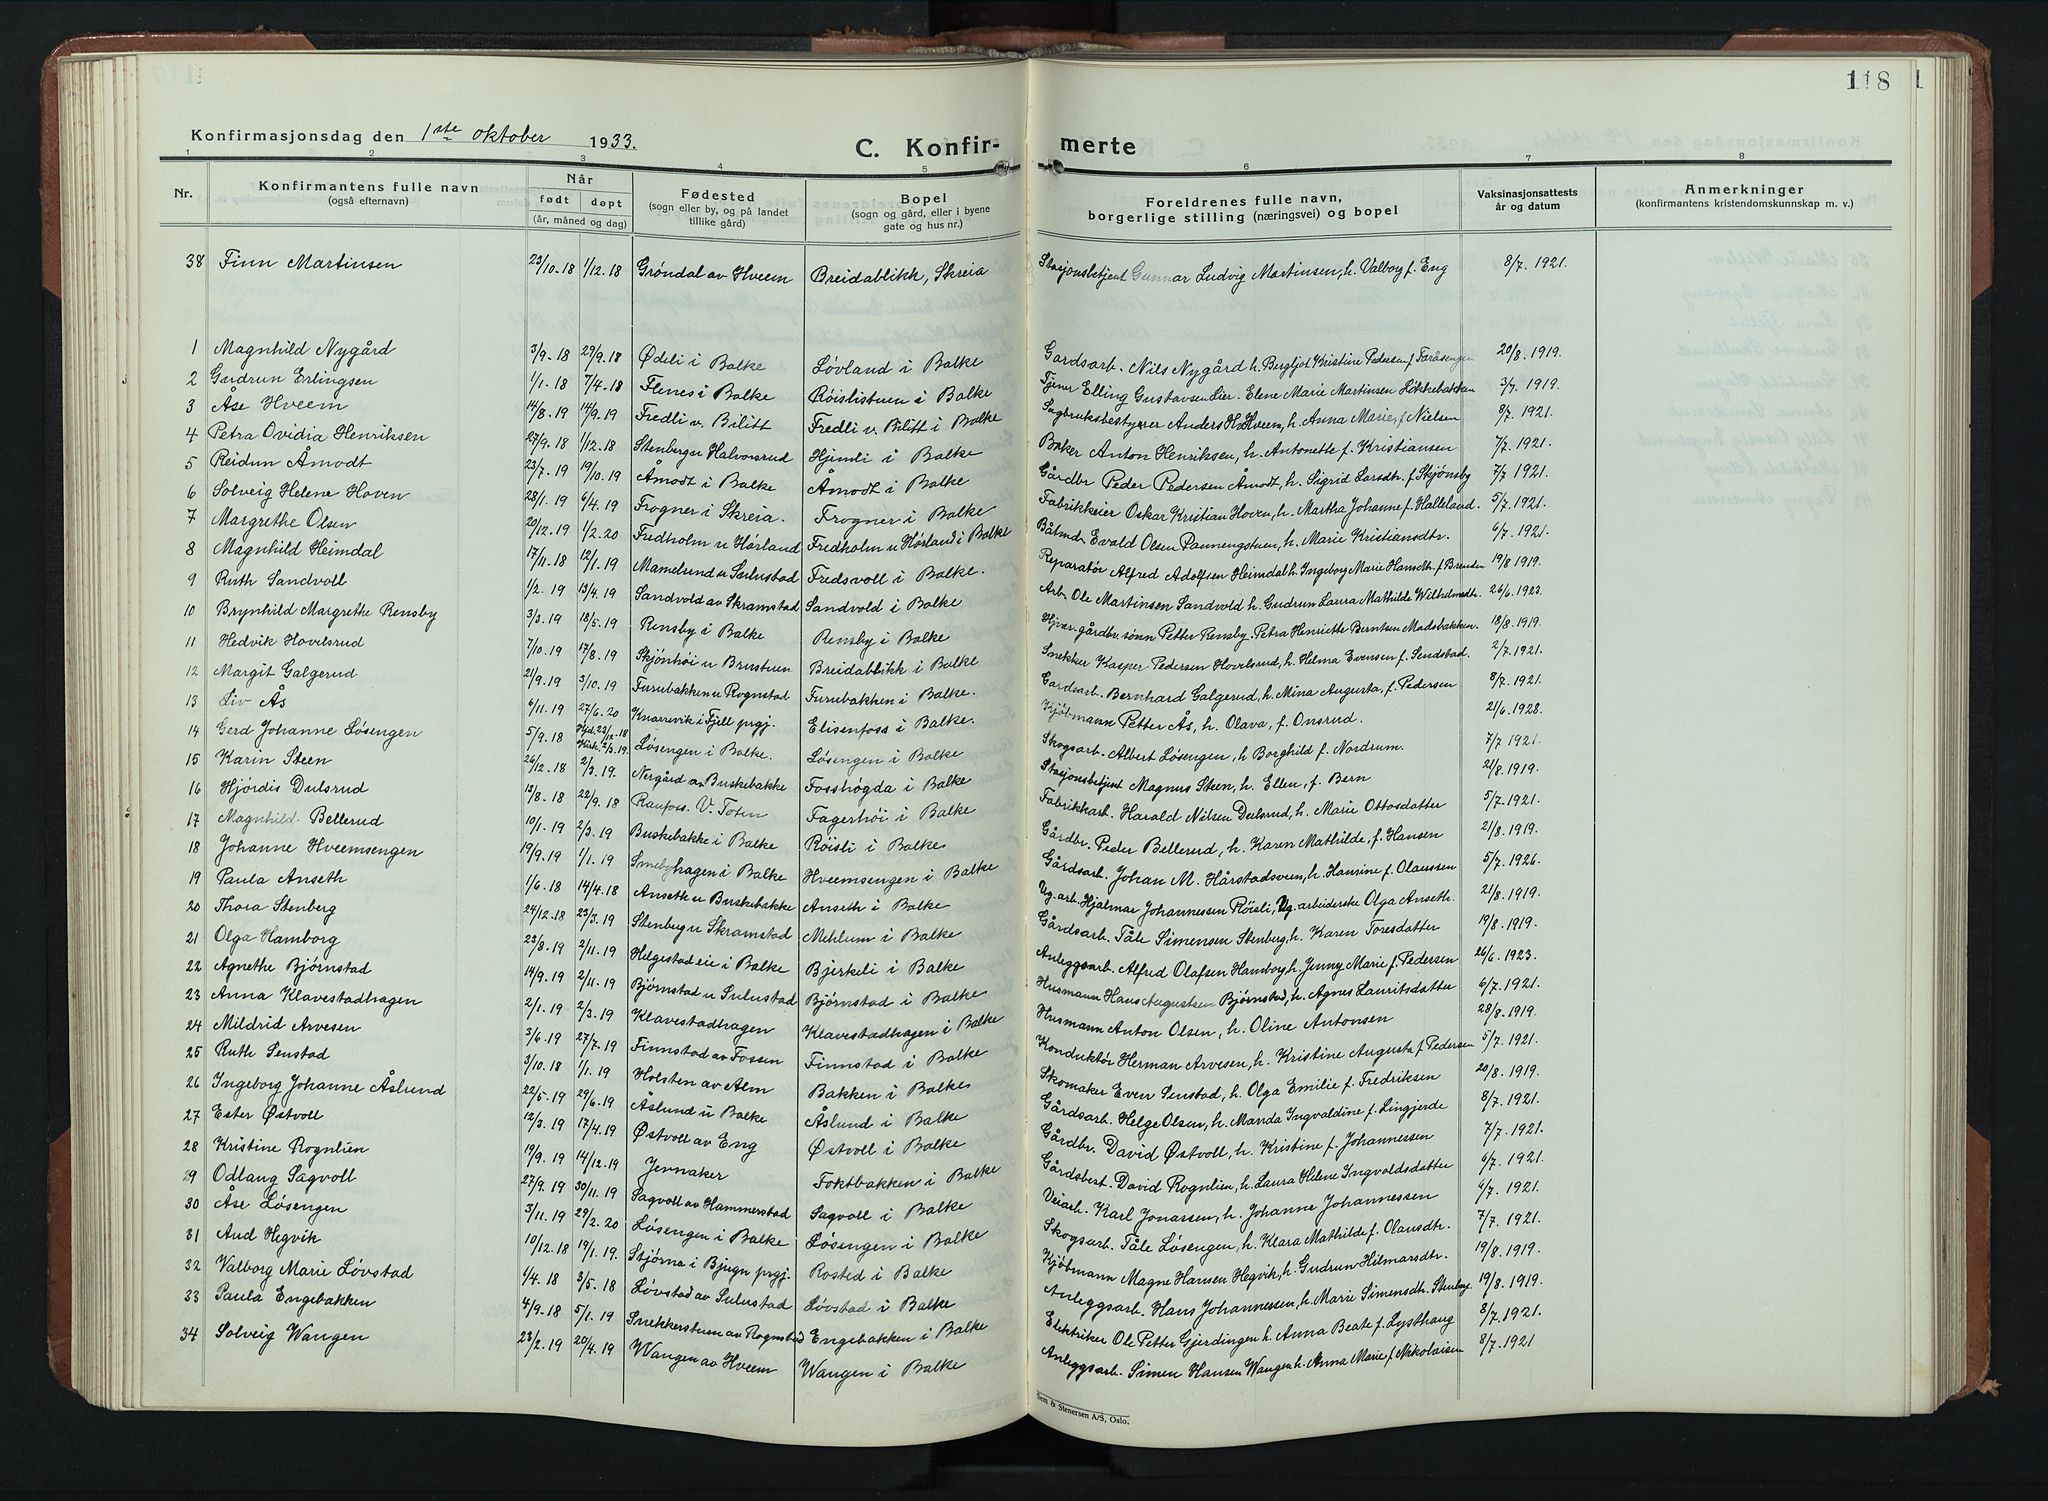 118
Konfirmasjonsdag den 1ste oktober 1933.
C. Konfir- merte
1 2 3 4 5 6 7 8
Nr. Konfirmantens fulle navn (også efternavn) Når født døpt (år, måned og dag) Fødested (sogn eller by, og på landet tillike gård) Bopel (sogn og gård, eller i byene gate og hus nr.) Foreldrenes fulle navn, borgerlige stilling (næringsvei) og bopel Vaksinasjonsattests år og datum Anmerkninger (konfirmantens kristendomskunnskap m. v.)
38 Finn Martinsen 23/10-18 1/12.18 Grøndal av Hveem Breidablikk, Skreia Stasjonsbetjent Gunnar Ludvig Martinsen, h. Valborg f. Eng 8/7. 1921.
1 Magnhild Nygård 3/9-18 29/9.18 Ødeli i Balke Løvland i Balke Gardsarb. Nils Nygård h. Bergljot Kristine Pedersen f. Foråsengen 20/8. 1919.
2 Gudrun Erlingsen 1/1.18 7/4-18 Flenes i Balke Røislistuen i Balke Tjener Elling Gustavsen Lier. Elene Marie Martinsen Løkkebakken 3/7. 1919.
3 Åse Hveem 14/8.19 14/9.19 Fredli v. Bilitt Fredli v. Bilitt i Balke Sagbruksbestyrer Anders H. Hveem, h. Anna Marie, f. Nielsen 8/7. 1921.
4 Petra Ovidia Henriksen 27/9.18 1/12.18 Stenberg u Halvorsrud Hjemli i Balke Baker Anton Henriksen, h. Antonette f. Kristiansen 7/7. 1921.
5 Reidun Åmodt 23/7.19 19/10.19 Åmodt i Balke Åmodt i Balke Gårdbr Peder Pedersen Åmodt, h. Sigrid Larsdtr. f. Skjønsby 7/7 1921.
6 Solveig Helene Hoven 28/1.19 6/4.19 Frogner i Skreia. Frogner i Balke Fabrikkeier Oskar Kristian Hoven, h. Martha Johanne f. Halleland. 5/7. 1921.
7 Margrethe Olsen 20/12.19 1/2.20 Fredholm u Hørland Fredholm u Hørland i Balke Båtmd. Evald Olsen Panengstuen, h. Marie Kristiansdtr. 6/7. 1921.
8 Magnhild Heimdal 17/11.18 12/1.19 Mamelund u Sulustad Fredsvoll i Balke. Reparatør Alfred Adolfsen Heimdal h. Ingeborg Marie Hansdtr. f. Brenden 19/8 1919.
9 Ruth Sandvoll 1/2.19 13/4.19 Sandvold av Skramstad Sandvold i Balke Arb. Ole Martinsen Sandvold h. Gudrun Laura Mathilde Wilhelmsdtr. 26/6. 1923.
10 Brynhild Margrethe Rensby 3/3.19 18/5.19 Rensby i Balke Rensby i Balke Hjver. gårdbr. sønn Petter Rensby. Petra Henriette Berntsen Madsbakken. 18/8. 1919.
11 Hedvik Hovelsrud 7/10.19 17/8.19 Skjønhøi u Brustuen Breidablikk i Balke Snekker Kasper Pedersen Hovelsrud, h. Helma Evensen f. Sendstad. 2/7. 1921.
12 Margit Galgerud 21/9.19 3/10.19 Furubakken u Rognstad Furubakken i Balke. Gardsarb. Bernhard Galgerud, h. Mina Augusta, f. Pedersen 8/7. 1921.
13 Liv Ås 6/11.19 27/6.20 Knarrevik i Fjell prgj. Elisenfoss i Balke. Kjøbmann Petter Ås, h. Olava, f. Onsrud. 21/6. 1928.
14 Gerd Johanne Løsengen 5/9.18 Hjd. 22/12.18 Kirk. 2/3.19. Løsengen i Balke. Løsengen i Balke Skogsarb. Albert Løsengen, h Borghild f. Nordrum. 7/7 1921.
15 Karin Steen 26/12.18 2/3.19. Nergård av Buskebakke Fosshøgda i Balke Stasjonsbetjent Magnus Steen, h. Ellen, f. Bern 21/8. 1919.
16 Hjørdis Dulsrud 13/8.18 22/9.18 Raufoss. V. Toten Fagerhøi i Balke Fabrikkarb. Harald Nilsen Dulsrud, h. Marie Ottosdatter 5/7. 1921.
17 Magnhild Bellerud 10/1.19 2/3.19 Buskebakke i Balke Røisli i Balke Gårdbr. Peder Bellerud, h. Karen Mathilde, f. Hansen 21/8. 1919.
18 Johanne Hveemsengen 19/9.19 1/1.19 Smebyhagen i Balke Hveemsengen i Balke Gårdsarb. Johan M. Hårstadsveen, h. Hansine f. Olaussen 5/7. 1926.
19 Paula Anseth 1/6.18 14/4.18 Anseth u Buskebakke Anseth i Balke Ug. arb. Hjalmar Johannessen Røisli, Ug. arbeiderske Olga Anseth. 21/8. 1919.
20 Thora Stenberg 24/12.18 23/3.19 Stenberg u Skramstad Mehlum i Balke Gårdsarb. Tåle Simensen Stenberg, h. Karen Toresdatter 19/8. 1919.
21 Olga Hamborg 23/8.19 2/11.19 Helgestad eie i Balke Bjerkeli i Balke Anleggsarb. Alfred Olafsen Hamborg h. Jenny Marie f. Pedersen 26/6. 1923.
22 Agnethe Bjørnstad 14/9.19 2/11.19 Bjørnstad u Sulustad Bjørnstad i Balke Husmann Hans Augustsen Bjørnstad, h. Agnes Lauritsdatter 6/7. 1921.
23 Anna Klavestadhagen 2/1.19 2/3.19 Klavestadhagen Klavestadhagen i Balke Husmann Anton Olsen, h. Oline Antonsen 28/8. 1919.
24 Mildrid Arvesen 3/6.19 27/7.19 Finnstad av Fossen Finnstad i Balke Konduktør Herman Arvesen, h. Kristine Augusta f. Pedersen 5/7. 1921.
25 Ruth Senstad 3/10.18 1/1.19 Holsten av Alm Bakken i Balke Skomaker Even Senstad, h. Olga Emilie f. Fredriksen 20/8. 1919.
26 Ingeborg Johanne Åslund 22/5.19 29/6.19 Åslund u Balke Åslund i Balke Gårdsarb. Helge Olsen, h. Manda Ingvaldine f. Lingjerde 8/7. 1921.
27 Ester Østvoll 12/3.19 17/4.19 Østvoll av Eng Østvoll i Balke Gårdbr. David Østvoll, h. Kristine f. Johannessen 7/7. 1921.
28 Kristine Rognlien 19/9.19 14/12.19 Jennaker Foktbakken i Balke Gårdsbest. David Rognlien, h. Laura Helene Ingvaldsdatter 6/7. 1921.
29 Odlaug Sagvoll 27/9.19 30/11.19 Sagvoll av Hammerstad Sagvoll i Balke Veiarb. Karl Jonassen, h. Johanne Johannessen 6/7. 1921.
30 Åse Løsengen 3/11.19 29/2.20 Løsengen i Balke Løsengen i Balke Skogsarb. Tåle Løsengen, h. Klara Mathilde f. Olausdtr. 7/7. 1921.
31 Aud Hegvik 10/12.18 19/1.19. Stjørna i Bjugn prgj. Rosted i Balke Kjøbmann Magne Hansen Hegvik, h. Gudrun Hilmarsdtr. 19/8. 1919.
32 Valborg Marie Løvstad 1/4.18 3/5.18 Løvstad av Sulustad Løvstad i Balke Anleggsarb. Hans Johannessen, h. Marie Simensdtr. Stenberg 19/8. 1919.
33 Paula Engebakken 4/9.18 5/1.19 Snekkerstuen av Rognstad Engebakken i Balke Elektriker Ole Petter Gjerdingen h. Anna Beate f. Lysthaug 8/7. 1921.
34 Solveig Wangen 23/2.19 20/4.19 Wangen av Hveem Wangen i Balke Anleggsarb. Simen Hansen Wangen h. Anna Marie f. Nikolaisen 8/7. 1921
Sem & Stenersen A/S, Oslo.